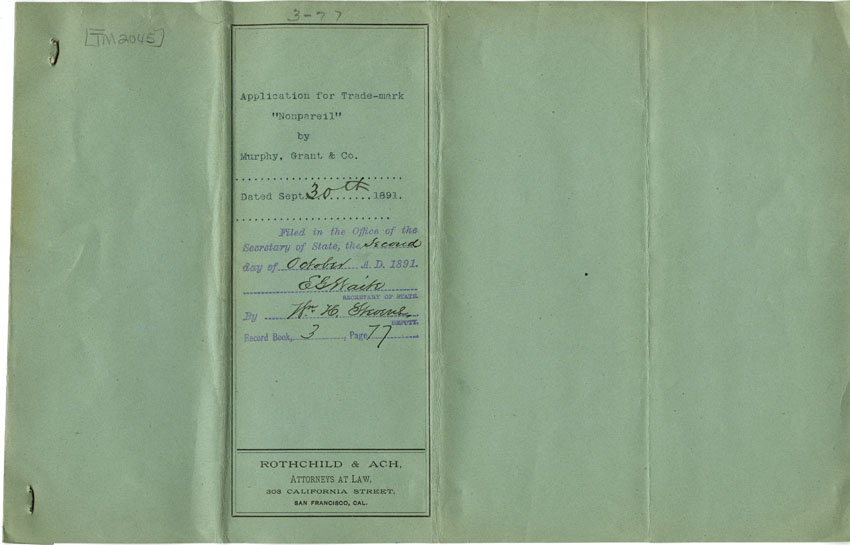 3-77
[TM2045]
Application for Trade-mark
"Nonpareil"
by
Murphy, Grant & Co.
Dated Sept. 30th 1891.
Filed in the Office of the
Secretary of State, the Second
day of October A. D. 1891.
E G Waite
SECRETARY OF STATE.
By Wm H.
DEPUTY.
Record Book, 3, Page 77
ROTHCHILD & ACH,
ATTORNEYS AT LAW,
303 CALIFORNIA STREET,
SAN FRANCISCO, CAL.